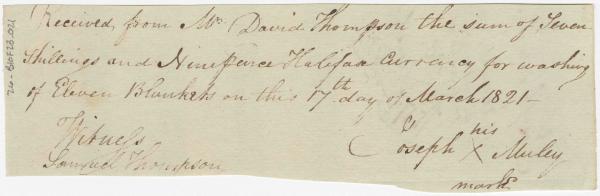 Received from Mr David Thompson the sum of Seven
Shillings and Ninepence Halifax Currency for washing
of Eleven Blankets on this 17th day of March 1821 -
Witness
Samuel Thompson
his
Joseph X Muley
mark